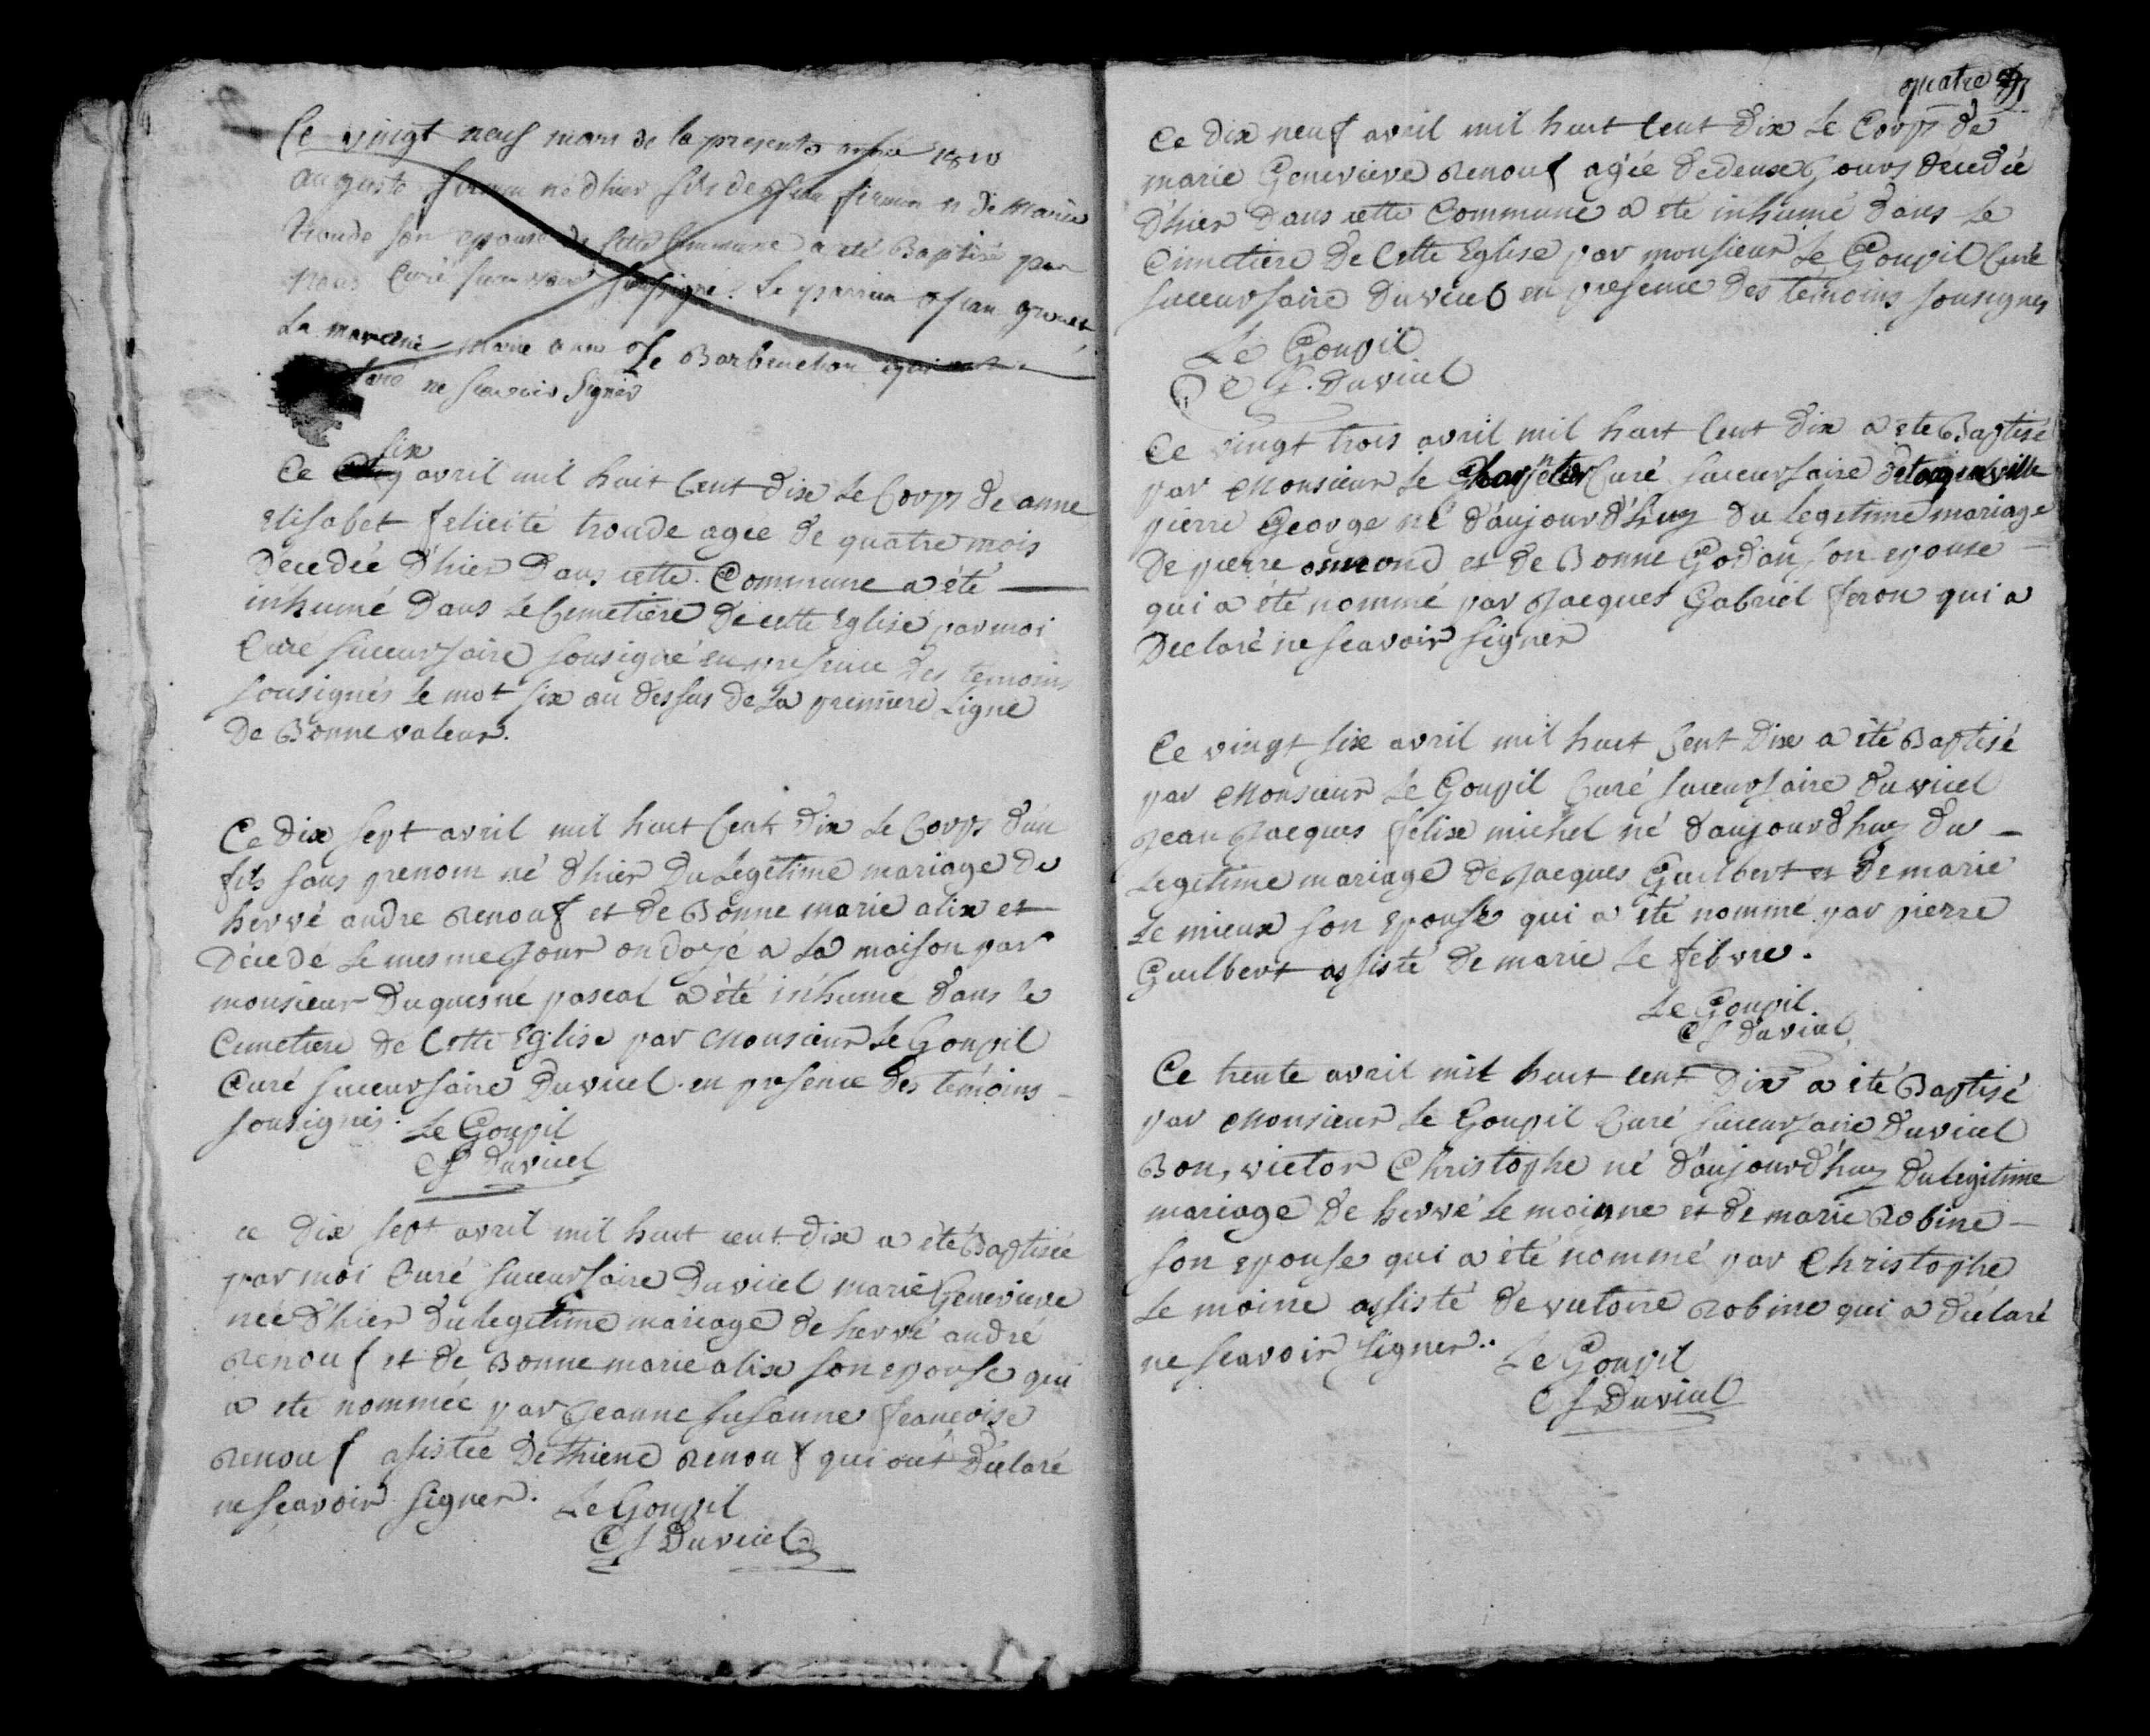 Ce vingt neuf mars de la presente 1810
auguste firmin né d'hier fils de jean firmin et de Marie
troude son epouse de cette Commune a eté Baptisé par
nous Curé succursaire soussigné. Le parrein jean
La mareine Marie anne Le Barbenchon qui ont
ne scavoir signer
six
Ce avril mil huit Cent dix Le Corps de anne
elisabet felicité troude agée de quatre mois
décedée d'hier dans cette Commune a été
inhumé dans Le Cemetiere de cette Eglise par moi
Curé succursaire sousigné en presence des temoins
sousignés le mot six au dessus de La premiere Ligne
de Bonne valeur.
Ce dix sept avril mil huit Cent dix Le Corps d'un
fils sans prenom né d'hier du Legitime mariage de
hervé andre Renouf et de Bonne marie alix et
Décedé le mesme jour ondoyé a La maison par
monsieur duquesné pascal a été inhumé dans le
Cemetiere de Cette Eglise par Monsieur Le Goupil
Curé succursaire Duvicel en presence des temoins
sousignés. Le Goupil
CS Duvicel
ce dix sept avril mil huit cent dix a été Baptisée
par moi Curé succursaire Duvicel marie Genevieve
née d'hier du legitime mariage de hervé andré
Renouf et de Bonne marie alix son epouse qui
a eté nommée par Jeanne susanne francoise
Renouf assistée dethiene Renouf qui ont déclaré
ne scavoir signer. Le Goupil
CS Duvicel
quatre
Ce dix neuf avril mil huit Cent dix Le Corps de
marie Genevieve Renouf agée de deux Jours décedée
D'hier dans cette Commune a eté inhumé dans Le
Cimetiere de Cette Eglise par monsieur Le Goupil Curé
succursaire Duvicel en presence des temoins sousignés
Le Goupil
CS. Duvicel
Ce vingt trois avril mil huit Cent dix a eté Baptisé
par Monsieur Le Charpentier Curé succursaire
pierre George né d'aujourd'huy du legitime mariage
De pierre osmond et de Bonne Godan son epouse
qui a été nommé par Jacques Gabriel feron qui a
Déclaré ne scavoir signer
Ce vingt six avril mil huit Cent Dix a été Baptisé
par Monsieur Le Goupil Curé succursaire Duvicel
Jean Jacques félix michel né d'aujourd'huy du
Legitime mariage de Jacques Guilbert et de marie
Le mieux son epouse qui a eté nommé par pierre
Guilbert assisté de marie Le febvre.
Le Goupil
CS Duvicel
Ce trente avril mil huit cent Dix a été Baptisé
par Monsieur Le Goupil Curé succursaire Duvicel
Bon, victor Christophe né d'aujourd'huy du legitime
mariage de hervé Le moigne et de marie Robine
son epouse qui a été nommé par Christophe
Le moine assisté de victoire Robine qui a déclaré
ne scavoir signer. Le Goupil
CS Duvicel